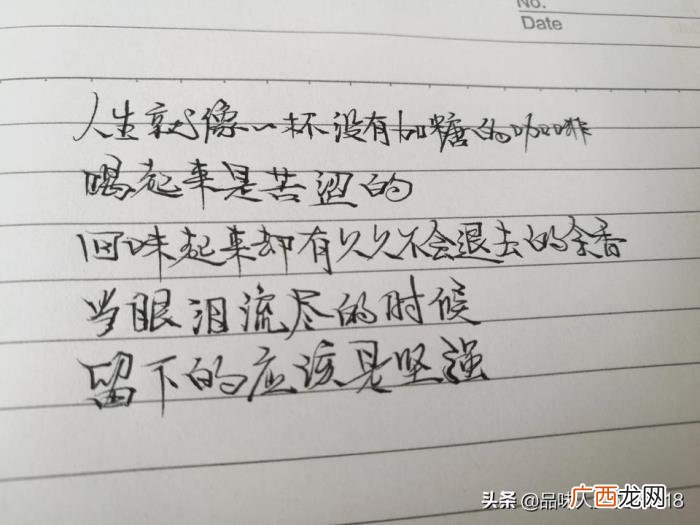 No.
Date
人生就像一杯没有加糖的咖啡
喝起来是苦涩的
回味起来却有久久不会退去的余香
当眼泪流尽的时候
留下的应该是坚强
头条 @品味人
18
广西龙网